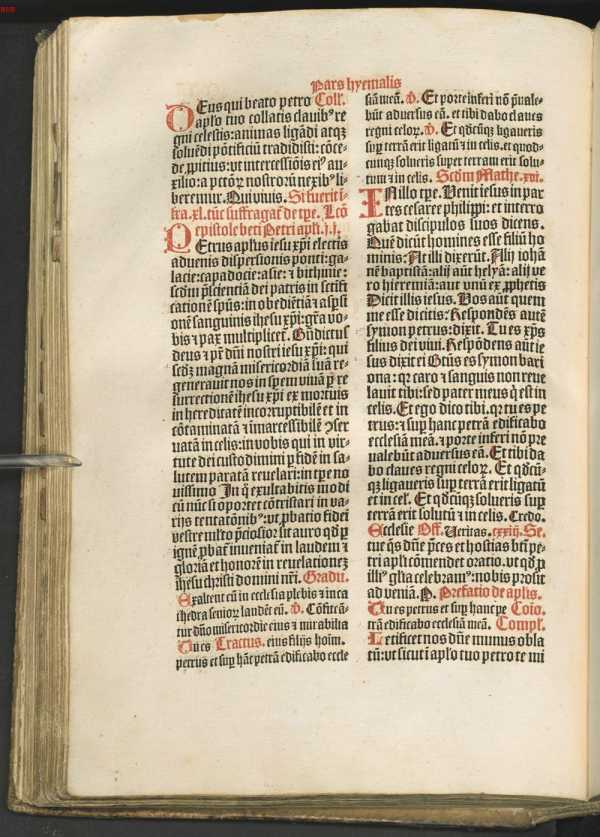 Pars hyemalis
DEus qui beato petro Coll'.
apło tuo collatis clauibꝰ re
gni celestis: animas ligādi atqꝫ
soluēdi pōtificiū tradidisti: cōce-
de ꝓpitius: vt intercessiōis eiꝰ au-
xilio: a pctōꝝ nostroꝝ nexibꝰ li-
beremur. Qui viuis. Si fuerit i-
fra .xl. tūc suffragaƫ de tp̄e. Lcō
epistole bt̄i Petri apłi. j. j.
PEtrus apłus iesu xp̄i electis
aduenis dispersionis ponti: ga-
lacie: capadocie: asie: ⁊ bithinie:
scd̄m p̄scientiā dei patris in sctifi
cationē sp̄us: in obediētiā ⁊ asp̄si
onē sanguinis ihesu xp̄i: gr̄a vo-
bis ⁊ pax multiplicet̄. Bn̄dictus
deus ⁊ pr̄ dn̄i nostri iesu xp̄i: qui
scd̄ꝫ magnā misericordiā suā re-
generauit nos in spem viuā ꝑ re
surrectionē ihesu xp̄i ex mortuis
in hereditatē incorruptibilē et in
cōtaminatā ⁊ immarcessibilē ꝯser
uatā in celis: in vobis qui in vir-
tute dei custodimini ꝑ fidē in sa-
lutem paratā reuelari: in tp̄e no
uissimo In q̄ exultabitis modi
cū nūc si oportet cōtristari in va-
rijs tentatōnibꝰ: vt ꝓbatio fidei
vestre multo p̄ciosior sit auro qd̄ ꝑ
ignē ꝓbat̄: inueniat̄ in laudem ⁊
gloriā et honorē in reuelationeꝫ
ihesu christi domini nr̄i. Gradu.
Exaltent eū in ecclesia plebis ⁊ in ca
thedra senioꝝ laudēt eū. ℣. Cōfiteā-
tur dn̄o misericordie eius ⁊ mirabilia
eius filijs hoīm. Tractus. Tu es
petrus et suꝑ hāc petrā edificabo eccle
siā meā. ℣. Et porte inferi nō p̄uale-
būt aduersus eā. et tibi dabo claues
regni celoꝝ. ℣. Et qd̄cūqꝫ ligaueris
suꝑ terrā erit ligatū ⁊ in celis. et quod-
cunqꝫ solueris super terram erit solu-
tum ⁊ in celis. Scd̄m Mathe. xvi.
IN illo tp̄e. Venit iesus in par
tes cesaree philippi: et interro
gabat discipulos suos dicens.
Quē dicūt homines esse filiū ho
minis: At illi dixerūt. Alij iohā
nē baptistā: alij autē helyā: alij ve
ro hieremiā: aut vnū ex ꝓphetis
Dicit illis iesus. Vos aūt quem
me esse dicitis: Respondēs autē
symon petrus: dixit. Tu es xp̄s
filius dei viui. Respōdens aūt ie
sus dixit ei Btūs es symon bari
ona: qꝛ caro ⁊ sanguis non reue
lauit tibi: sed pater meus q̄ est in
celis. Et ego dico tibi. qꝛ tu es pe
trus: ⁊ suꝑ hanc petrā edificabo
ecclesiā meā. ⁊ porte inferi nō pre
ualebūt aduersus eā. Et tibi da
bo claues regni celoꝝ. Et qd̄cū-
qꝫ ligaueris suꝑ terrā erit ligatū
et in cel'. Et qd̄cūqꝫ solueris suꝑ
terrā erit solutū ⁊ in celis. Credo.
Off. Veritas. cxxiij. Se.
Ecclesie
tue q̄s dn̄e p̄ces et hostias bt̄i pe-
tri apłi cōmendet oratio. vt qd̄ ꝑ
illiꝰ gl'ia celebramꝰ: nobis prosit
ad veniā. P. Prefatio de apłis.
Tu es petrus et suꝑ hanc pe Cōio.
trā edificabo ecclesiā meā. Compl'.
Letificet nos dn̄e munus obla
tū: vt sicut ī apło tuo petro te mi